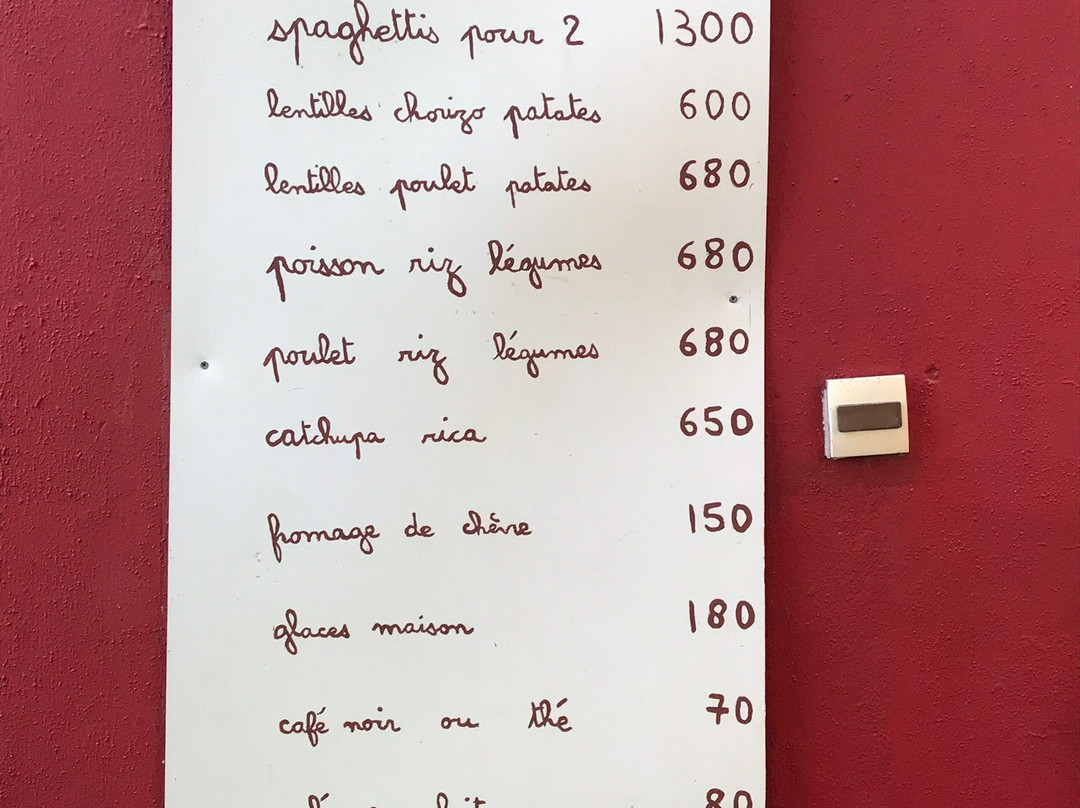 spaghettis pour 2 1300
lentilles chorizo patates 600
lentilles poulet patates 680
poisson riz légumes 680
poulet riz légumes 680
catchupa rica 650
fromage de chèvre 150
glaces maison 180
café noir ou thé 70
80